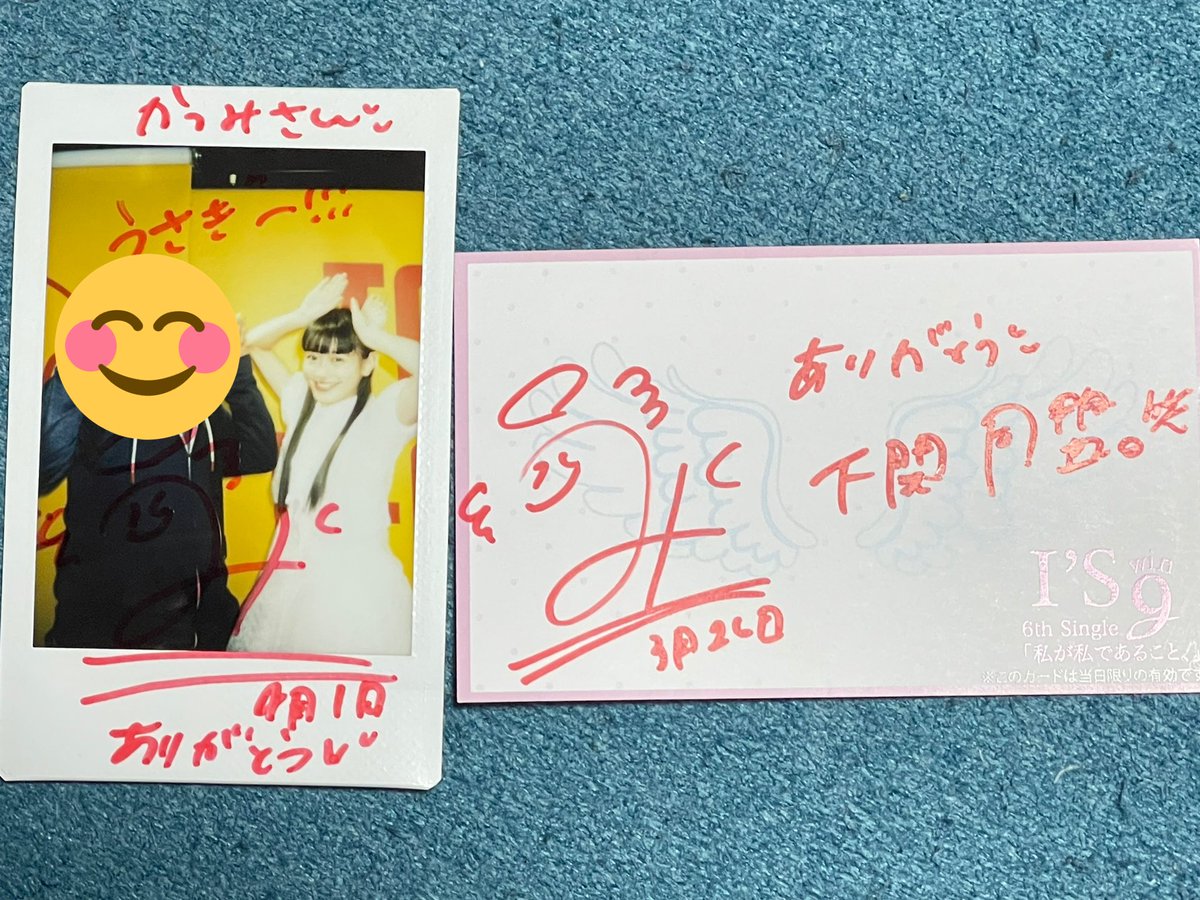 かつみさん
うさぎー!!!
4月1日
ありがとう
ありがとう
下関
3月26日
I'S
win
9
6th Single
「私が私であること」
※このカードは当日限りの有効です